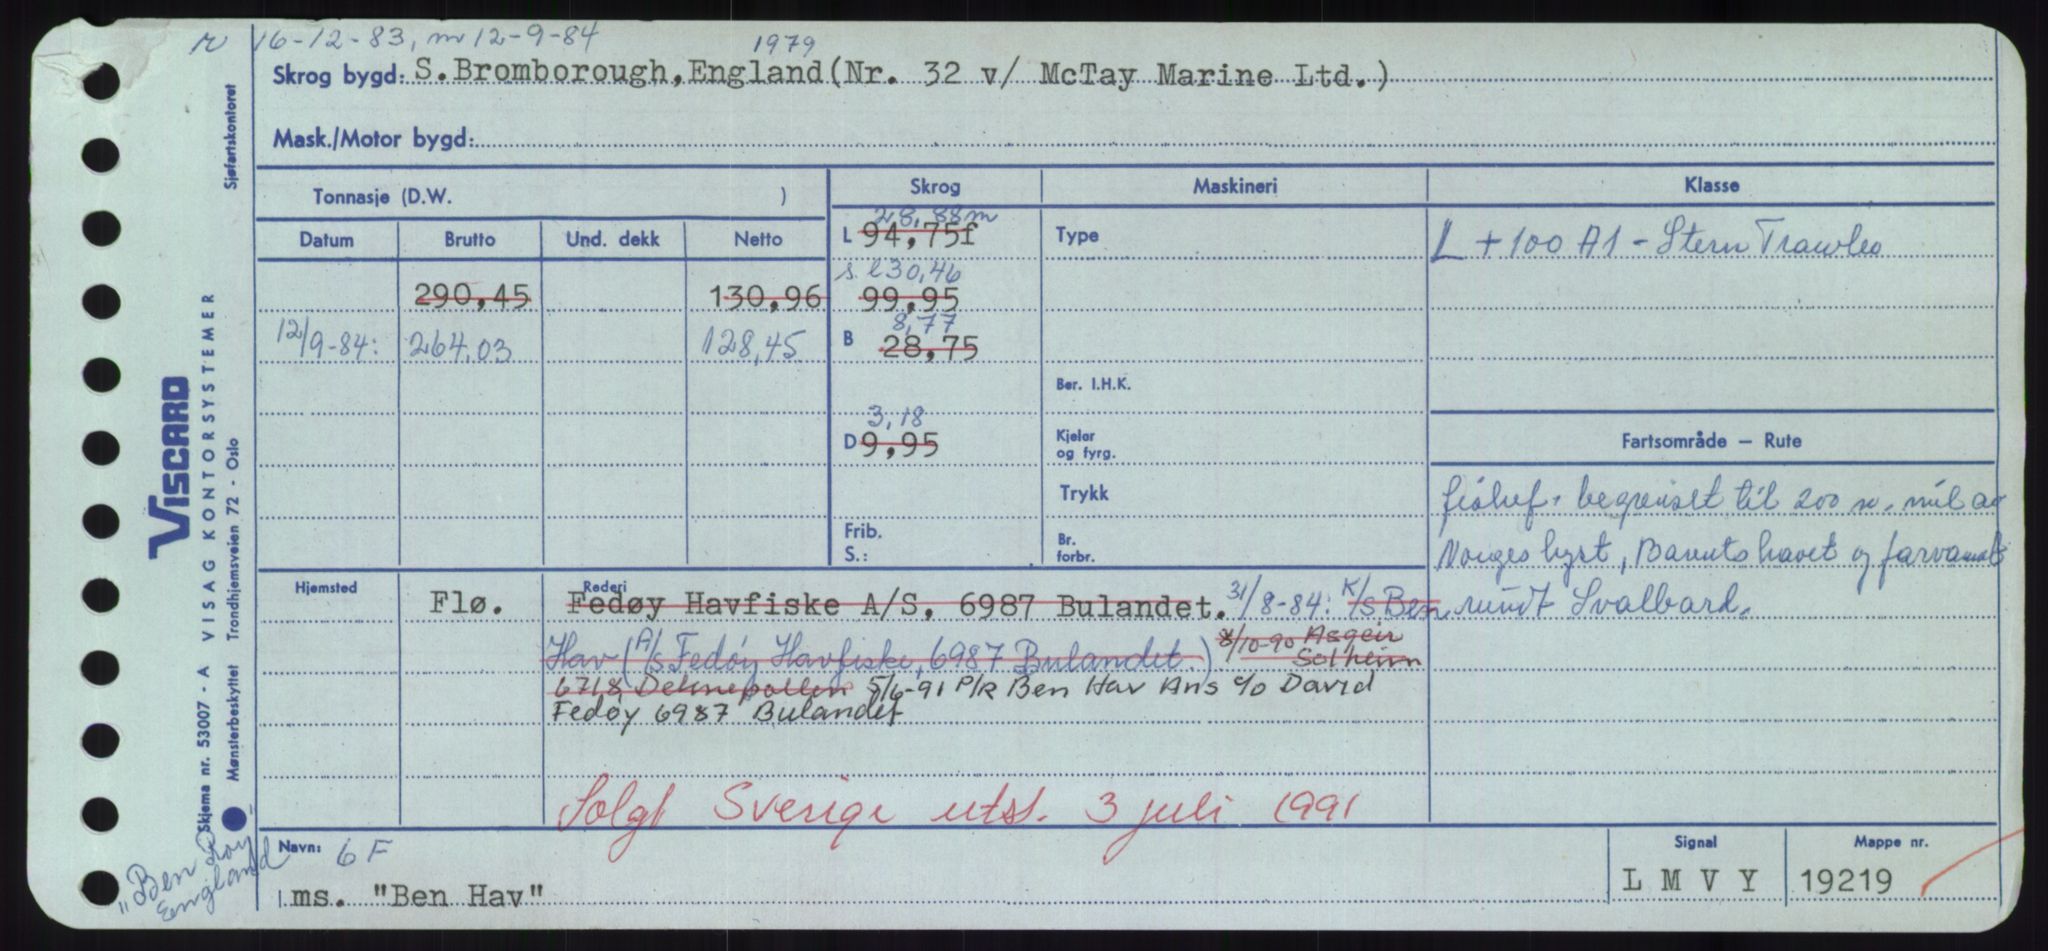 r 16-12-83, m 12-9-84
1979
Skrog bygd: S.Bromborough,England(Nr. 32 v/ McTay Marine Ltd.)
Mask./Motor bygd:
Tonnasje (D.W. )
Skrog
Maskineri
Klasse
Datum
Brutto
Und. dekk
Netto
28,88m
L 94,75f
Type
L +100 A1 - Stern Trawler
s l 30,46
290,45
130,96
99,95
8,77
12/9-84:
264,03
128,45
B 28,75
Ber. I.H.K.
3,18
D 9,95
Kjelar
og fyrg.
Fartsområde — Rute
Trykk
fiskef. begrenset til 200 n. mil av
Frib.
S.:
Br.
forbr.
Norges kyst, Barentshavet og farvannet
rundt Svalbard.
Hjemsted
Rederi
Flø.
Fedøy Havfiske A/S, 6987 Bulandet. 31/8-84: K/S Ben
Hav (A/s Fedøy Havfiske, 6987 Bulandet.) 8/10-90 Asgeir
Solheim
6718 Deknepollen 5/6-91 P/R Ben Hav Ans c/o David
Fedøy 6987 Bulandet
Solgt Sverige utst. 3 juli 1991
Navn: 6 F
ms. "Ben Hav"
Signal
L M V Y
Mappe nr.
19219
"Ben Roy"
England
VISCARD
Skjema nr. 53007 - A VISAG KONTORSYSTEMER
Mønsterbeskyttet Trondhjemsveien 72 - Oslo
Sjøfartskontoret